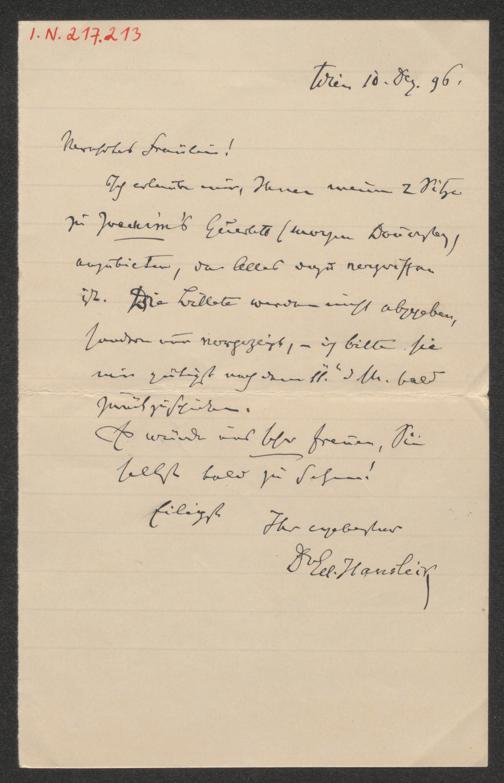 I. N. 217.213
Wien 10. Dez. 96.
Verehrtes Fräulein!
Ich erlaube mir, Ihnen meine 2 Sitze
zu Joachim's Quartett (morgen Donerstag)
anzubieten, da Alles dazu vergriffen
ist. Die Billete werden nicht abgegeben,
sondern nur vorgezeigt, – ich bitte sie
mir gütigst nach dem 11. d. M. bald
zurückzuschicken.
Es würde uns sehr freuen, Sie
selbst bald zu sehen!
Eiligst Ihr ergebenster
Dr Ed. Hanslick